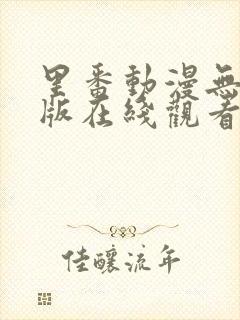 里番動漫無
版在綫觀看
佳釀流年